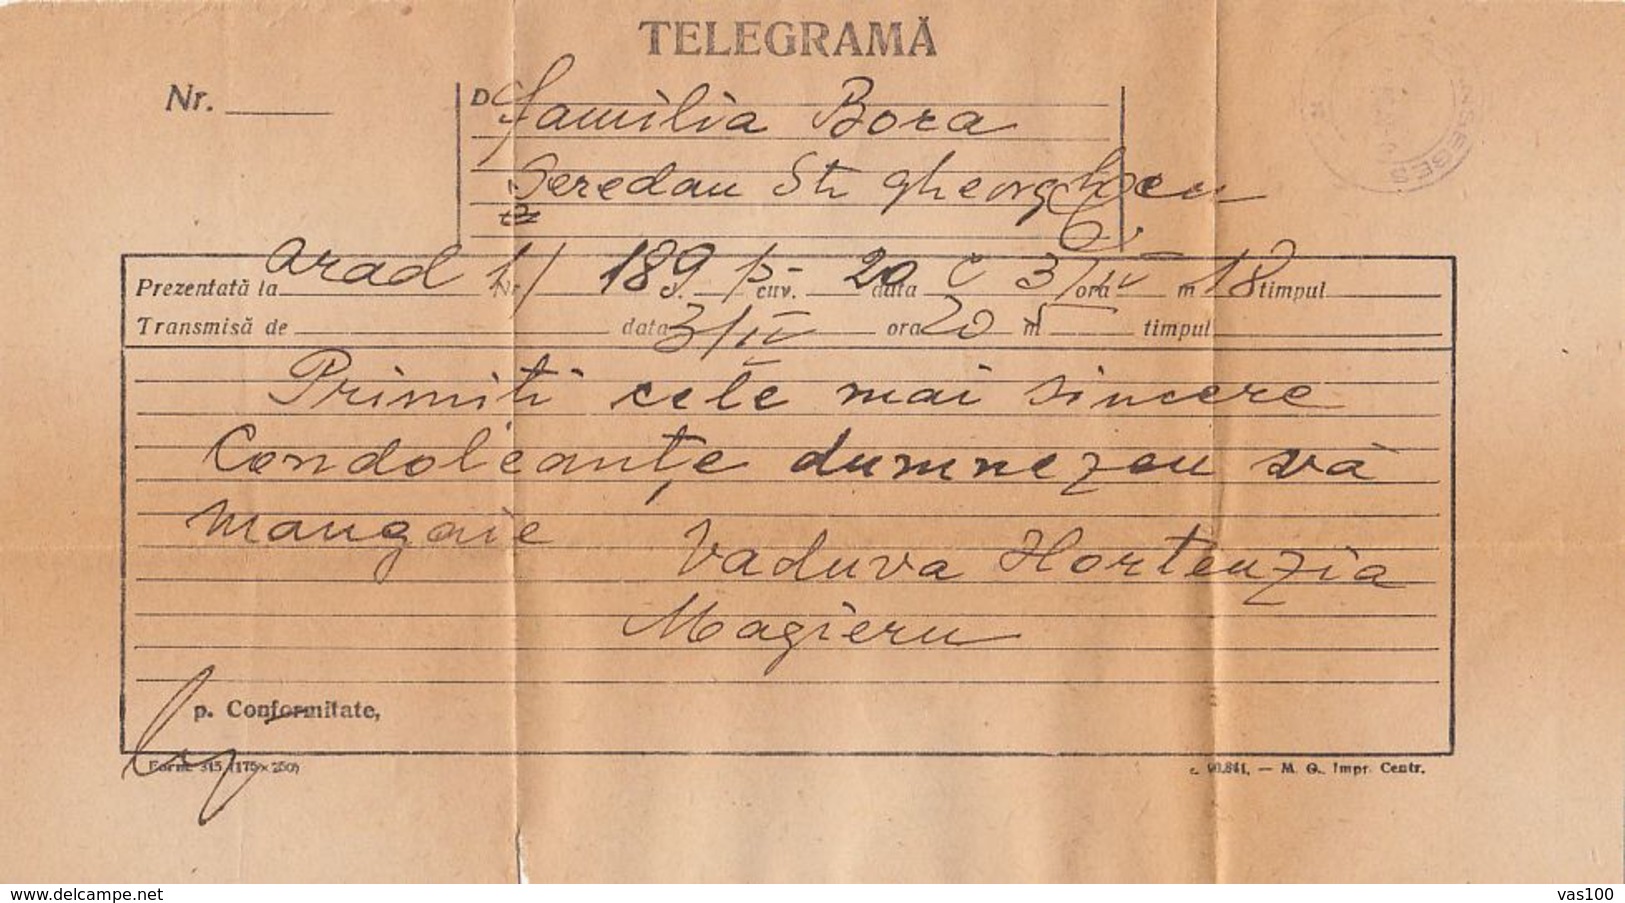 TELEGRAMĂ
Nr.
D Familia Bora
Seredau Str gheorghe
Prezentată la arad Nr. 1/ 189 p cuv. 20 data 3/IV ora 18 m timpul
Transmisă de data 3/IV ora 20 m timpul
Primiti cele mai sincere
Condoleanțe dumnezeu vă
mangaie Vaduva Hortenzia
Magieru
p. Conformitate,
Form. 315 (175×250)
c. 90.841. — M. G. Impr. Centr.
SEBEȘ
delcampe.net
vas100